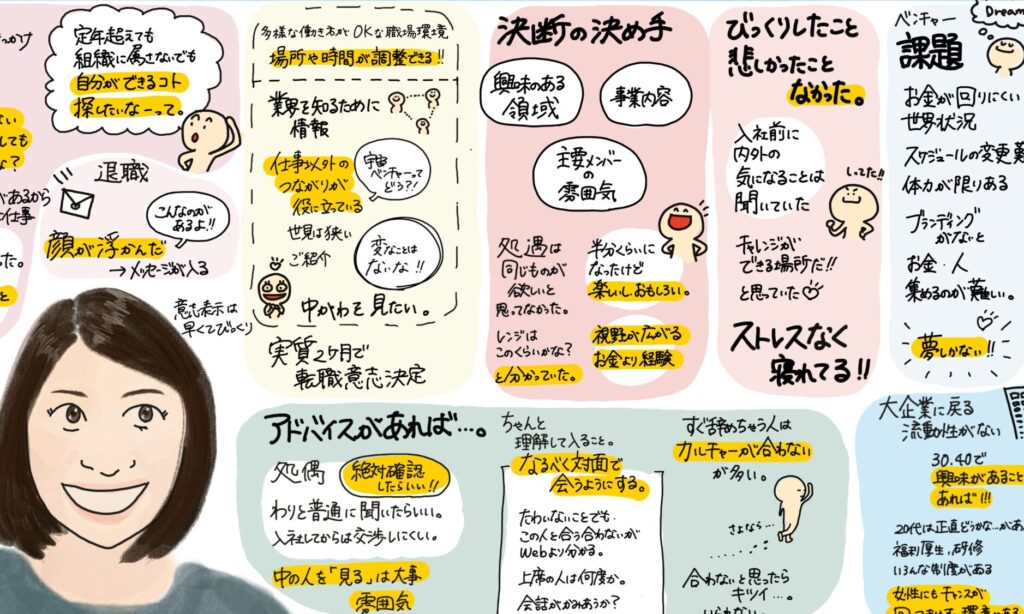 っかけ
定年超えても
組織に属さないでも
自分ができるコト
探したいなーって。
ない
しても
よ？
があるから
仕事
った。
と
退職
こんなのが
あるよ!!
顔が浮かんだ
→メッセージが入る
意志表示は
早くてびっくり
多様な働き方がOKな職場環境
場所や時間が調整できる!!
業界を知るために
情報
仕事以外の
つながりが
役に立っている
宇宙
ベンチャーって
どう?!
世見は狭い
ご紹介
変なことは
ないな!!
中がわを見たい。
実質2ヶ月で
転職意志決定
決断の決め手
興味のある
領域
事業内容
主要メンバー
の
雰囲気
処遇は
同じものが
欲しいと
思ってなかった。
レンジは
このくらいかな？
と分かっていた。
半分くらいに
なったけど
楽しいし、おもしろい。
視野が広がる
お金より経験
びっくりしたこと
悲しかったこと
なかった。
入社前に
内外の
気になることは
聞いていた
しってた!!
チャレンジが
できる場所だ!!
と思っていた♡
ストレスなく
寝れてる!!
ベンチャー
課題
Dream
お金が回りにくい
世界状況
スケジュールの変更難
体力が限りある
ブランディング
がないと
お金・人
集めるのが難しい。
夢しかない!!
アドバイスがあれば…。
処偶
絶対確認
したらいい!!
わりと普通に聞いたらいい。
入社してからは交渉しにくい。
中の人を「見る」は大事
雰囲気
ちゃんと
理解して入ること。
なるべく対面で
会うようにする。
たわいないことでも
この人と合う合わないが
Webより分かる。
上席の人は何度か。
会話がかみあうか？
すぐ辞めちゃう人は
カルチャーが合わない
が多い。
さよなら…
合わないと思ったら
キツイ…
いられない…
大企業に戻る
流動性がない
30.40で
興味があること
あれば!!!
20代は正直どうかな…があ
福利厚生,研修
いろんな制度がある
女性にもチャンスが